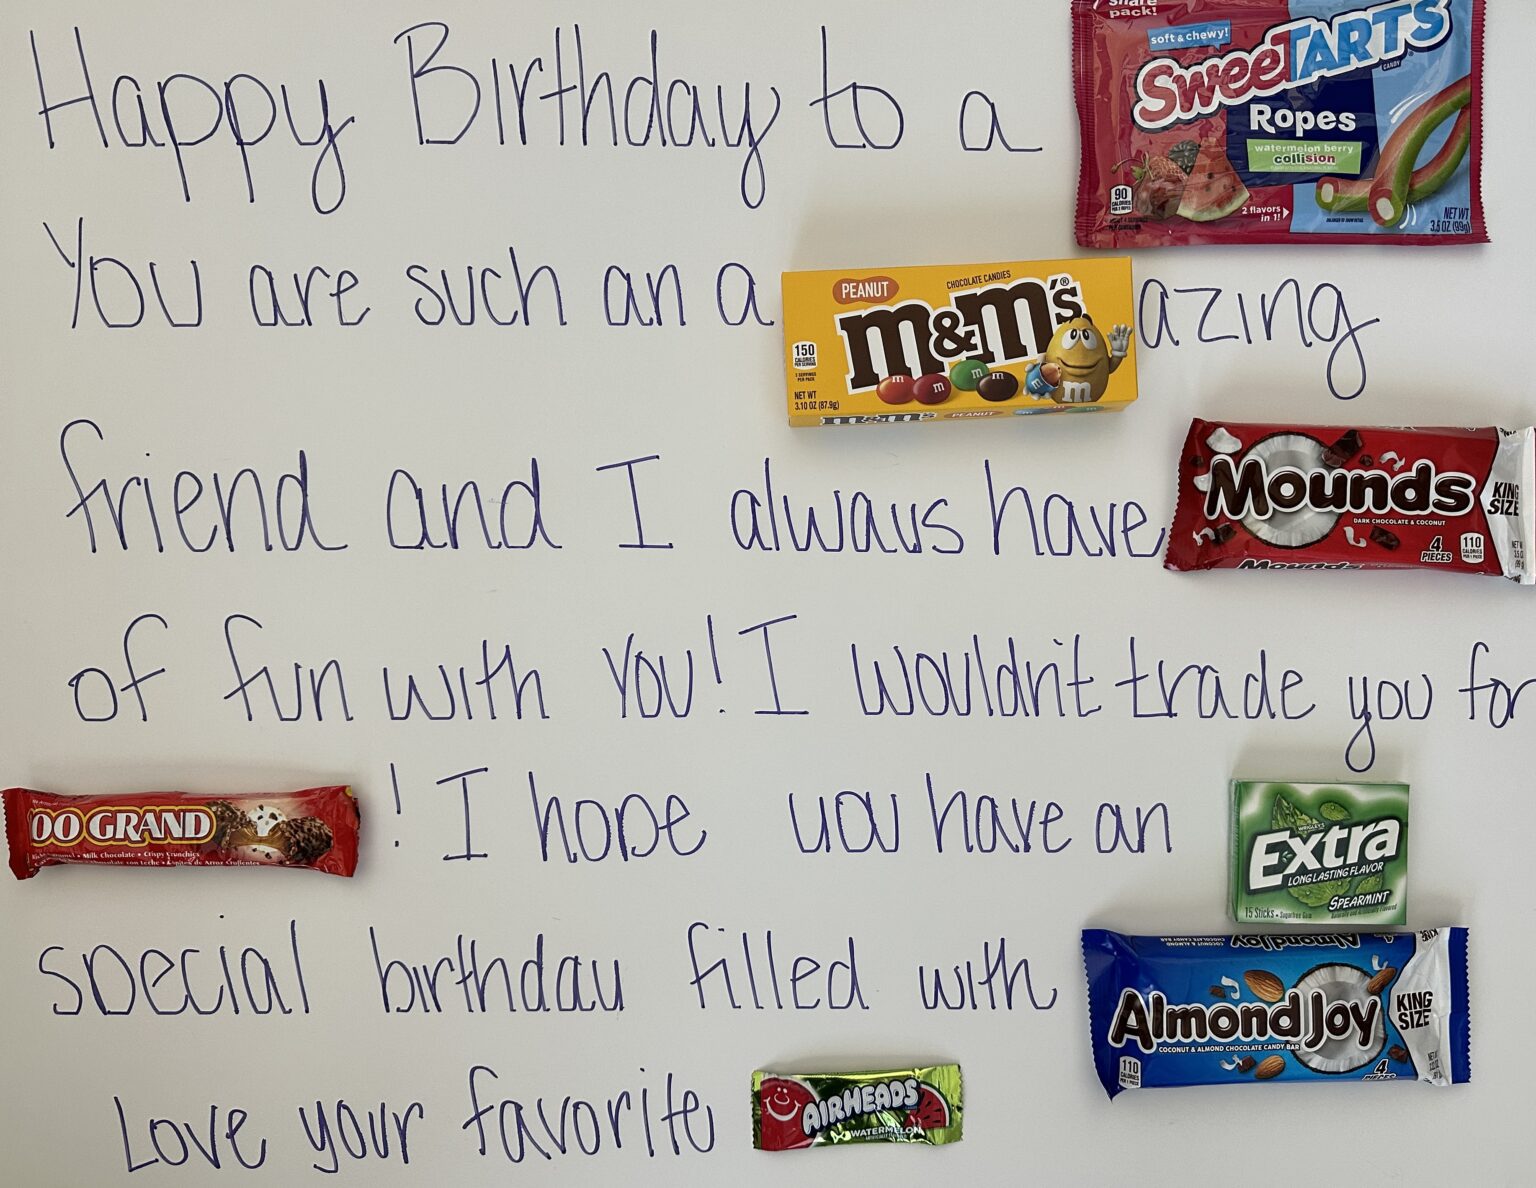 Happy Birthday to a share pack! soft & chewy! SweeTARTS CANDY Ropes watermelon berry collision 90 CALORIES 2 flavors in 1! NET WT 3.5 OZ (99g)
You are such an a PEANUT CHOCOLATE CANDIES m&m's® 150 CALORIES PER SERVING 3 SERVINGS PER PACK NET WT 3.10 OZ (87.9g) m&m's PEANUT azing
friend and I always have Mounds DARK CHOCOLATE & COCONUT KING SIZE 4 PIECES 110 CALORIES PER 1 PIECE Mounds
of fun with you! I wouldn't trade you for
00 GRAND Milk Chocolate • Crispy Crunchies ! I hope you have an WRIGLEY'S Extra LONG LASTING FLAVOR SPEARMINT 15 Sticks • Sugarfree Gum
special birthday filled with Almond Joy COCONUT & ALMOND CHOCOLATE CANDY BAR KING SIZE 110 CALORIES PER 1 PIECE 4 PIECES
Love your favorite AIRHEADS WATERMELON